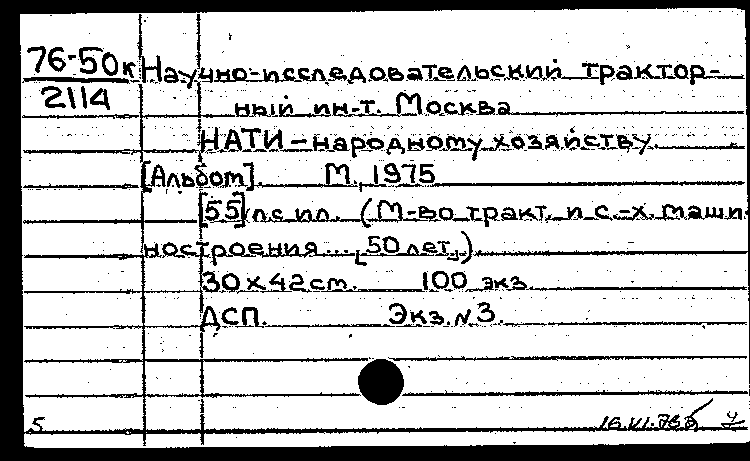 76-50к Научно-исследовательский трактор-
2114 ный ин-т. Москва
НАТИ – народному хозяйству.
[Альбом]. М., 1975
[55] л. с ил. (М-во тракт. и с.-х. маши-
ностроения... [50 лет]).
30 х 42 см. 100 экз.
ДСП. Экз. № 3.
5